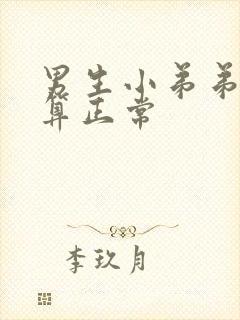 男生小弟弟
算正常
李玖月